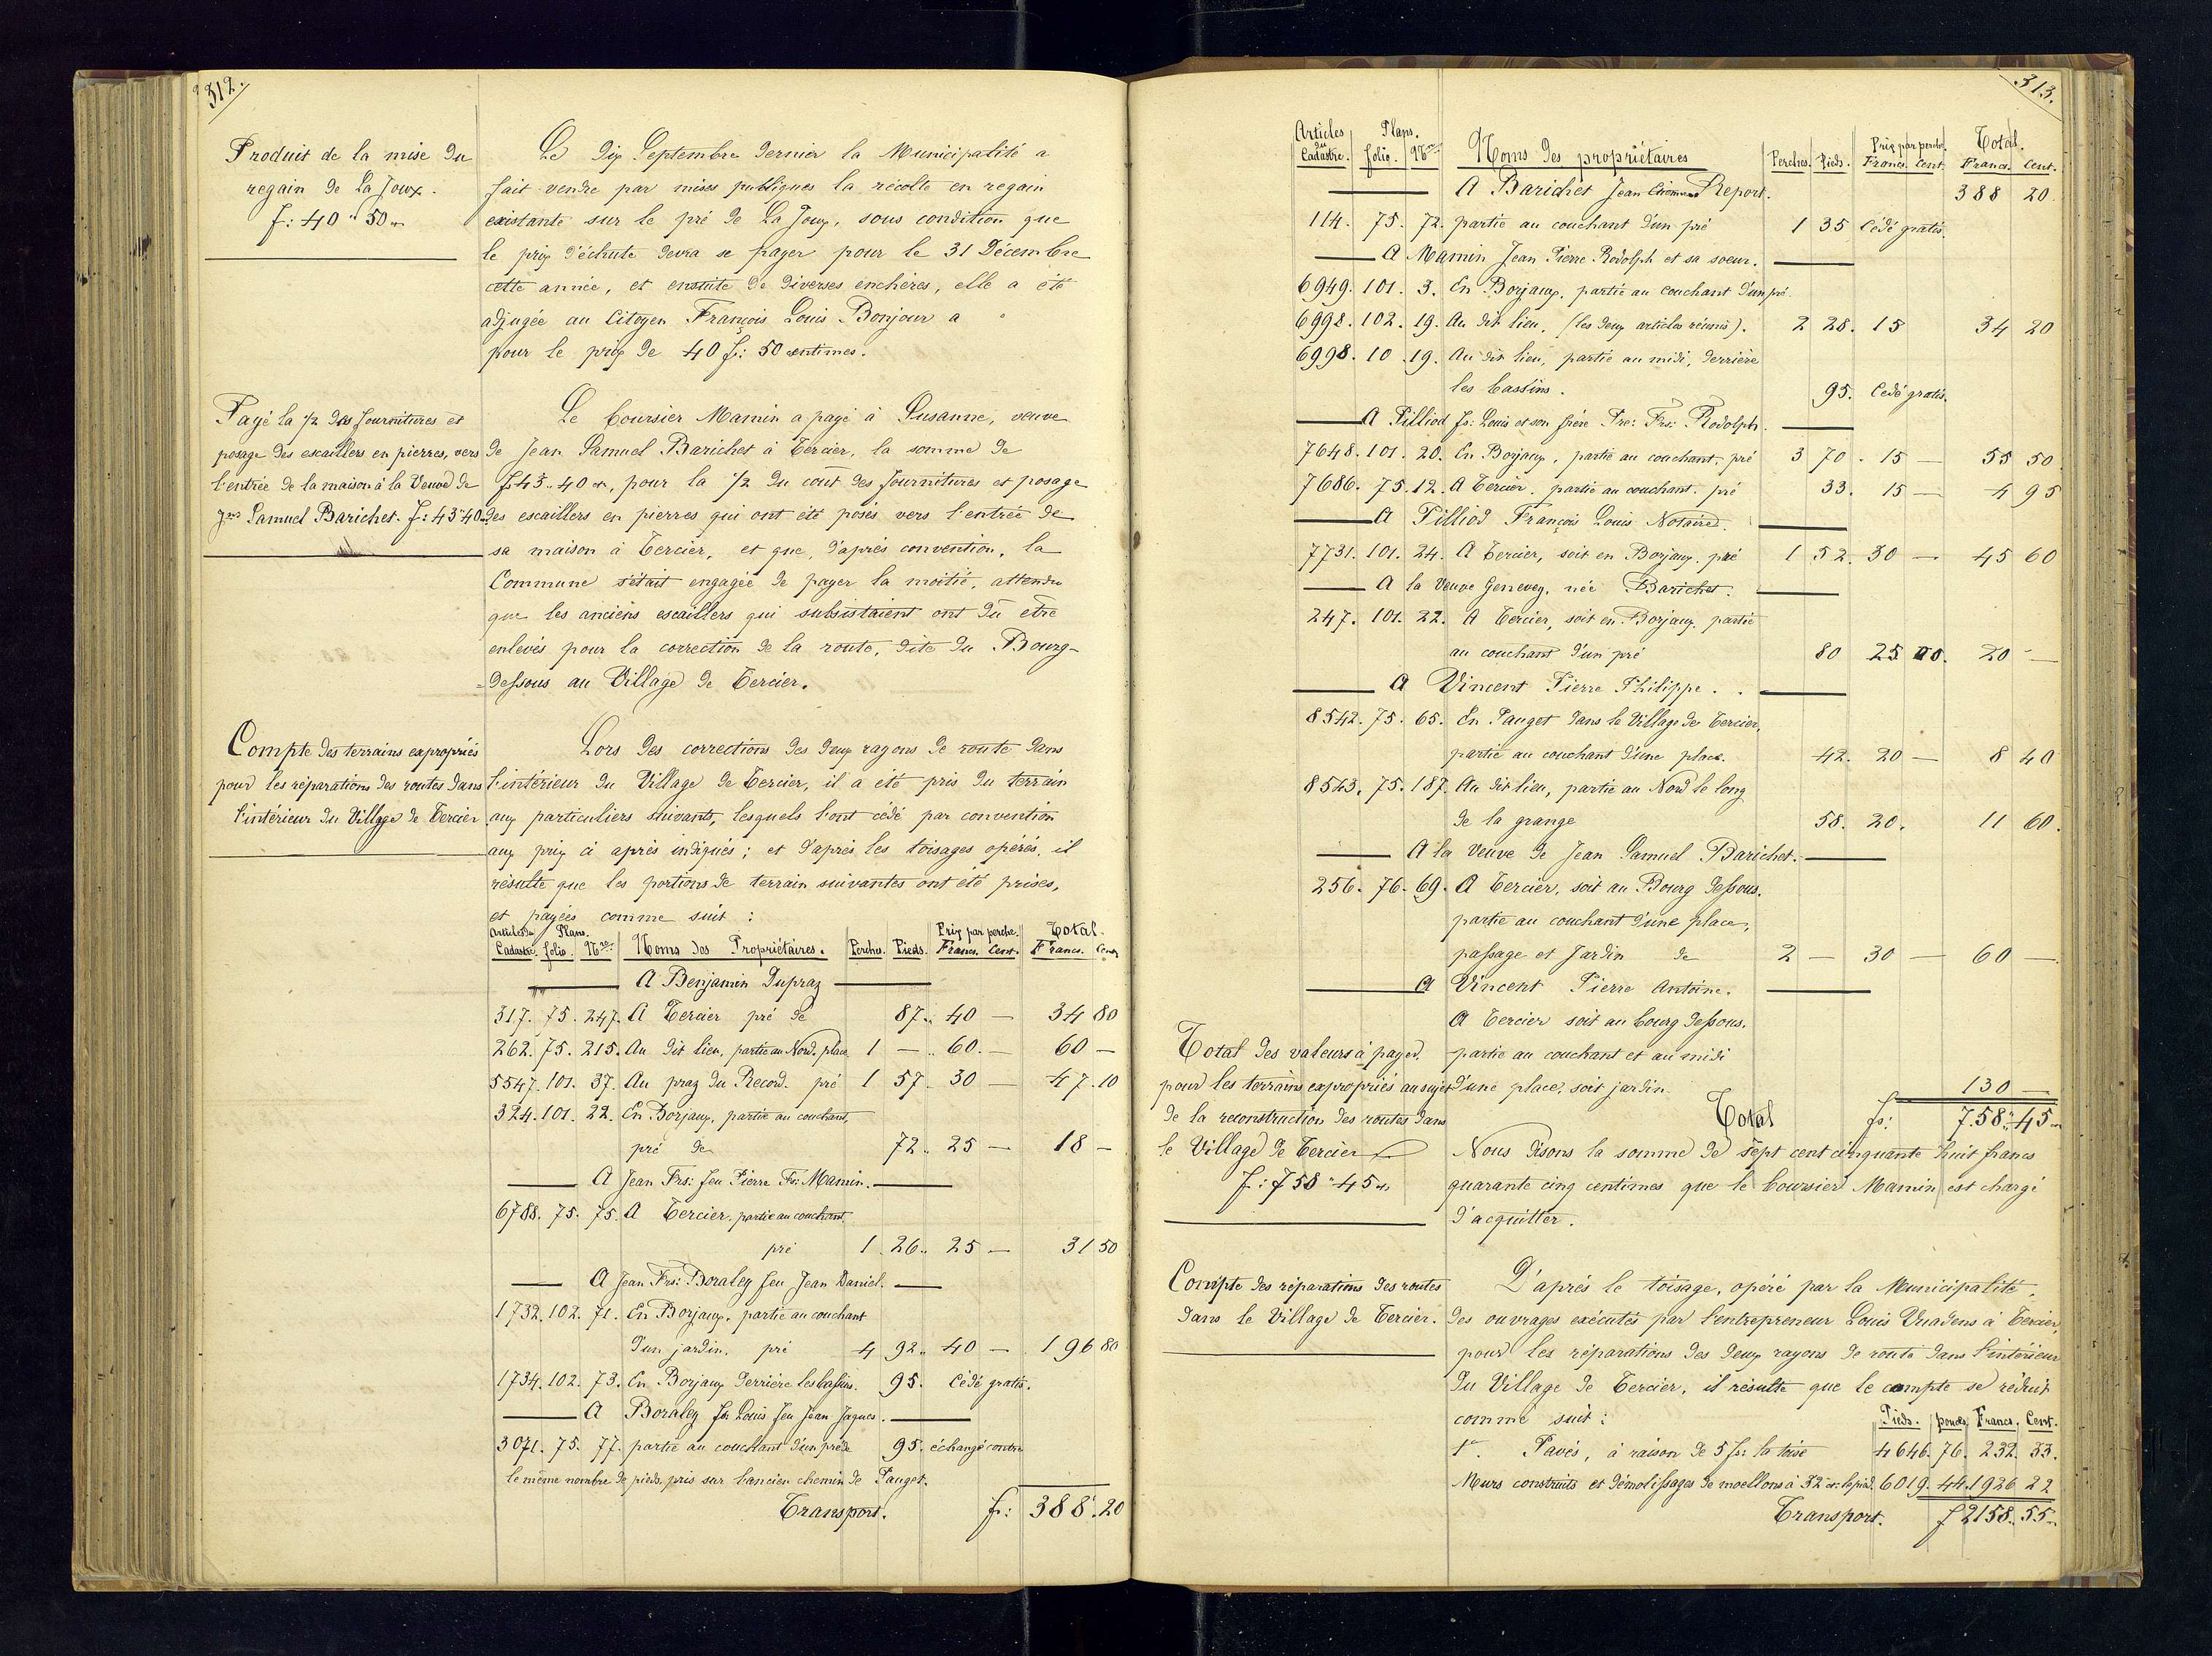 312.
Produit de la mise du
regain de La Joux.
f: 40 " 50 cn
Le dix Septembre dernier la Municipalité a
fait vendre par mises publiques la récolte en regain
existante sur le pré de La Joux, sous condition que
le prix d'échute devra se payer pour le 31 Décembre
cette année, et ensuite de diverses enchères, elle a été
adjugée au Citoyen François Louis Bonjour a
pour le prix de 40 f: 50 centimes.
Payé la 1/2 des fournitures et
posage des escaillers en pierres, vers
l'entrée de la maison à la Veuve de
Jean Samuel Barichet. f: 43"40.
Le boursier Mamin a payé à Susanne, veuve
de Jean Samuel Barichet à Tercier, la somme de
f 43 .. 40 cn, pour la 1/2 du coût des fournitures et posage
des escaillers en pierres qui ont été posés vers l'entrée de
sa maison à Tercier, et que, d'après convention, la
Commune s'était engagée de payer la moitié, attendu
que les anciens escaillers qui subsistaient ont dû etre
enlevés pour la correction de la route, dite du Bourg-
=dessous au Village de Tercier.
Compte des terrains expropriés
pour les réparations des routes dans
l'intérieur du Village de Tercier
Lors des corrections des deux rayons de route dans
l'intérieur du Village de Tercier, il a été pris du terrain
aux particuliers suivants, lesquels l'ont cédé par convention
aux prix ci après indiqués ; et d'après les toisages opérés, il
résulte que les portions de terrain suivantes ont été prises,
et payées comme suit :
Articles du Plans. Prix par perche. Total.
Cadastre. folio. Nros Noms des Propriétaires. Perches. Pieds. Francs. Cent. Francs. Cent
A Benjamin Dupraz
317. 75. 247. A Tercier pré de 87 .. 40 — 34 80
262. 75. 215. Au dit lieu, partie au Nord. place 1 — .. 60. — 60 —
5547. 101. 37. Au praz du Record. pré 1 57 30 — 47.10
324. 101. 22. En Borjaux, partie au couchant,
pré de 72 .. 25 — 18 —
A Jean Frs: feu Pierre Frs: Mamin.
6788. 75. 75. A Tercier, partie au couchant
pré 1 26 .. 25 — 31 50
A Jean Frs: Boraley feu Jean Daniel.
1732. 102. 71. En Borjaux, partie au couchant
d'un jardin. pré 4 92 .. 40 — 196 80
1734. 102. 73. En Borjaux derrière les bassins. 95. Cédé gratis.
A Boraley Js Louis feu Jean Jaques.
3071. 75. 77. partie au couchant d'un pré de 95. échangé contre
le même nombre de pieds, pris sur l'ancien chemin de Pauget.
Transport. fr: 388".20
313.
Articles du Plans. Prix par perche. Total.
Cadastre. folio. Nros Noms des propriétaires Perches. Pieds. Francs. Cent. Francs. Cent.
A Barichet Jean Report. 388 20
114. 75. 72. partie au couchant d'un pré 1 35 Cédé gratis.
A Mamin Jean Pierre Rodolph et sa soeur.
6949. 101. 3. En Borjaux, partie au couchant d'un pré.
6998. 102. 19. Au dit lieu, (les deux articles réunis). 2 28. 15 34 20
6998. 10 .19. Au dit lieu, partie au midi, derrière
les bassins. 95. Cédé gratis.
A Pilliod Js: Louis et son frère Pre: Frs: Rodolph.
7648. 101. 20. En Borjaux, partie au couchant, pré 3 70 . 15 — 55 50
7686. 75. 12. A Tercier. partie au couchant. pré 33. 15 — 4 95
A Pilliod François Louis Notaire.
7731. 101. 24. A Tercier, soit en Borjaux, pré 1 52. 30 — 45 60
A la Veuve Genevey, née Barichet.
247. 101. 22. A Tercier, soit en Borjaux, partie
au couchant d'un pré 80 25 20 —
A Vincent Pierre Philippe.
8542. 75. 65. En Pauget dans le Village de Tercier,
partie au couchant d'une place. 42. 20 — 8 40
8543. 75. 187. Au dit lieu, partie au Nord le long
de la grange 58. 20. 11 60.
A la Veuve de Jean Samuel Barichet.
256. 76. 69. A Tercier, soit au Bourg dessous.
partie au couchant d'une place,
passage et Jardin de 2 — 30 — 60 —
A Vincent Pierre Antoine.
A Tercier soit au bourg dessous.
partie au couchant et au midi
d'une place, soit jardin 130 —
Total fr: 758".45 cn
Total des valeurs à payer.
pour les terrains expropriés au sujet
de la reconstruction des routes dans
le Village de Tercier
f: 758 " 45 cn
Nous disons la somme de sept cent cinquante huit francs
quarante cinq centimes que le boursier Mamin est chargé
d'acquitter.
Compte des réparations des routes
dans le Village de Tercier.
D'après le toisage, opéré par la Municipalité,
des ouvrages exécutés par l'entrepreneur Louis Vuadens à Tercier,
pour les réparations des deux rayons de route dans l'intérieur
du Village de Tercier, il résulte que le compte se réduit
comme suit : Pieds. pouces. Francs. Cent.
1º. Pavés, à raison de 5 fr: la toise 4646. 76. 232. 33.
Murs construits et démolissages de moellons à 32 cn: le pied. 6019. 44. 1926 22
Transport. f 2158.. 55 cn